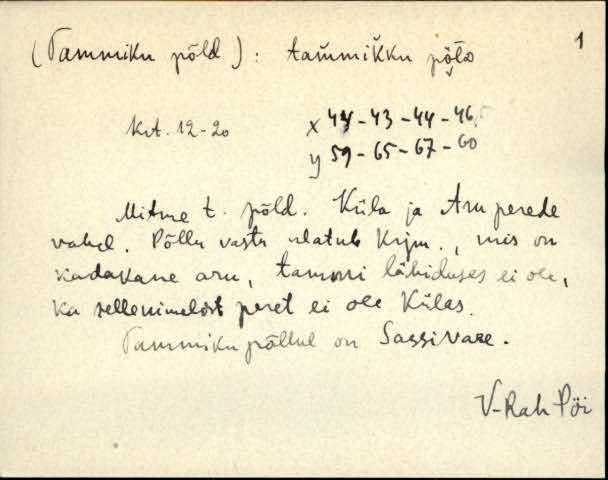 1
(Tammiku põld) : tam̆mik̆ku põ̭lᴅ
Krt. 12-20 x 44 - 43 - 44 - 46,5
y 59 - 65 - 67 - 60
Mitme t. põld. Küla ja Aru perede
vahel. Põllu vastu ulatub Krjm., mis on
kadakane aru, tammi läheduses ei ole,
ka sellenimelist peret ei ole Külas.
Tammiku põllul on Sassivare.
V-Rah Pöi